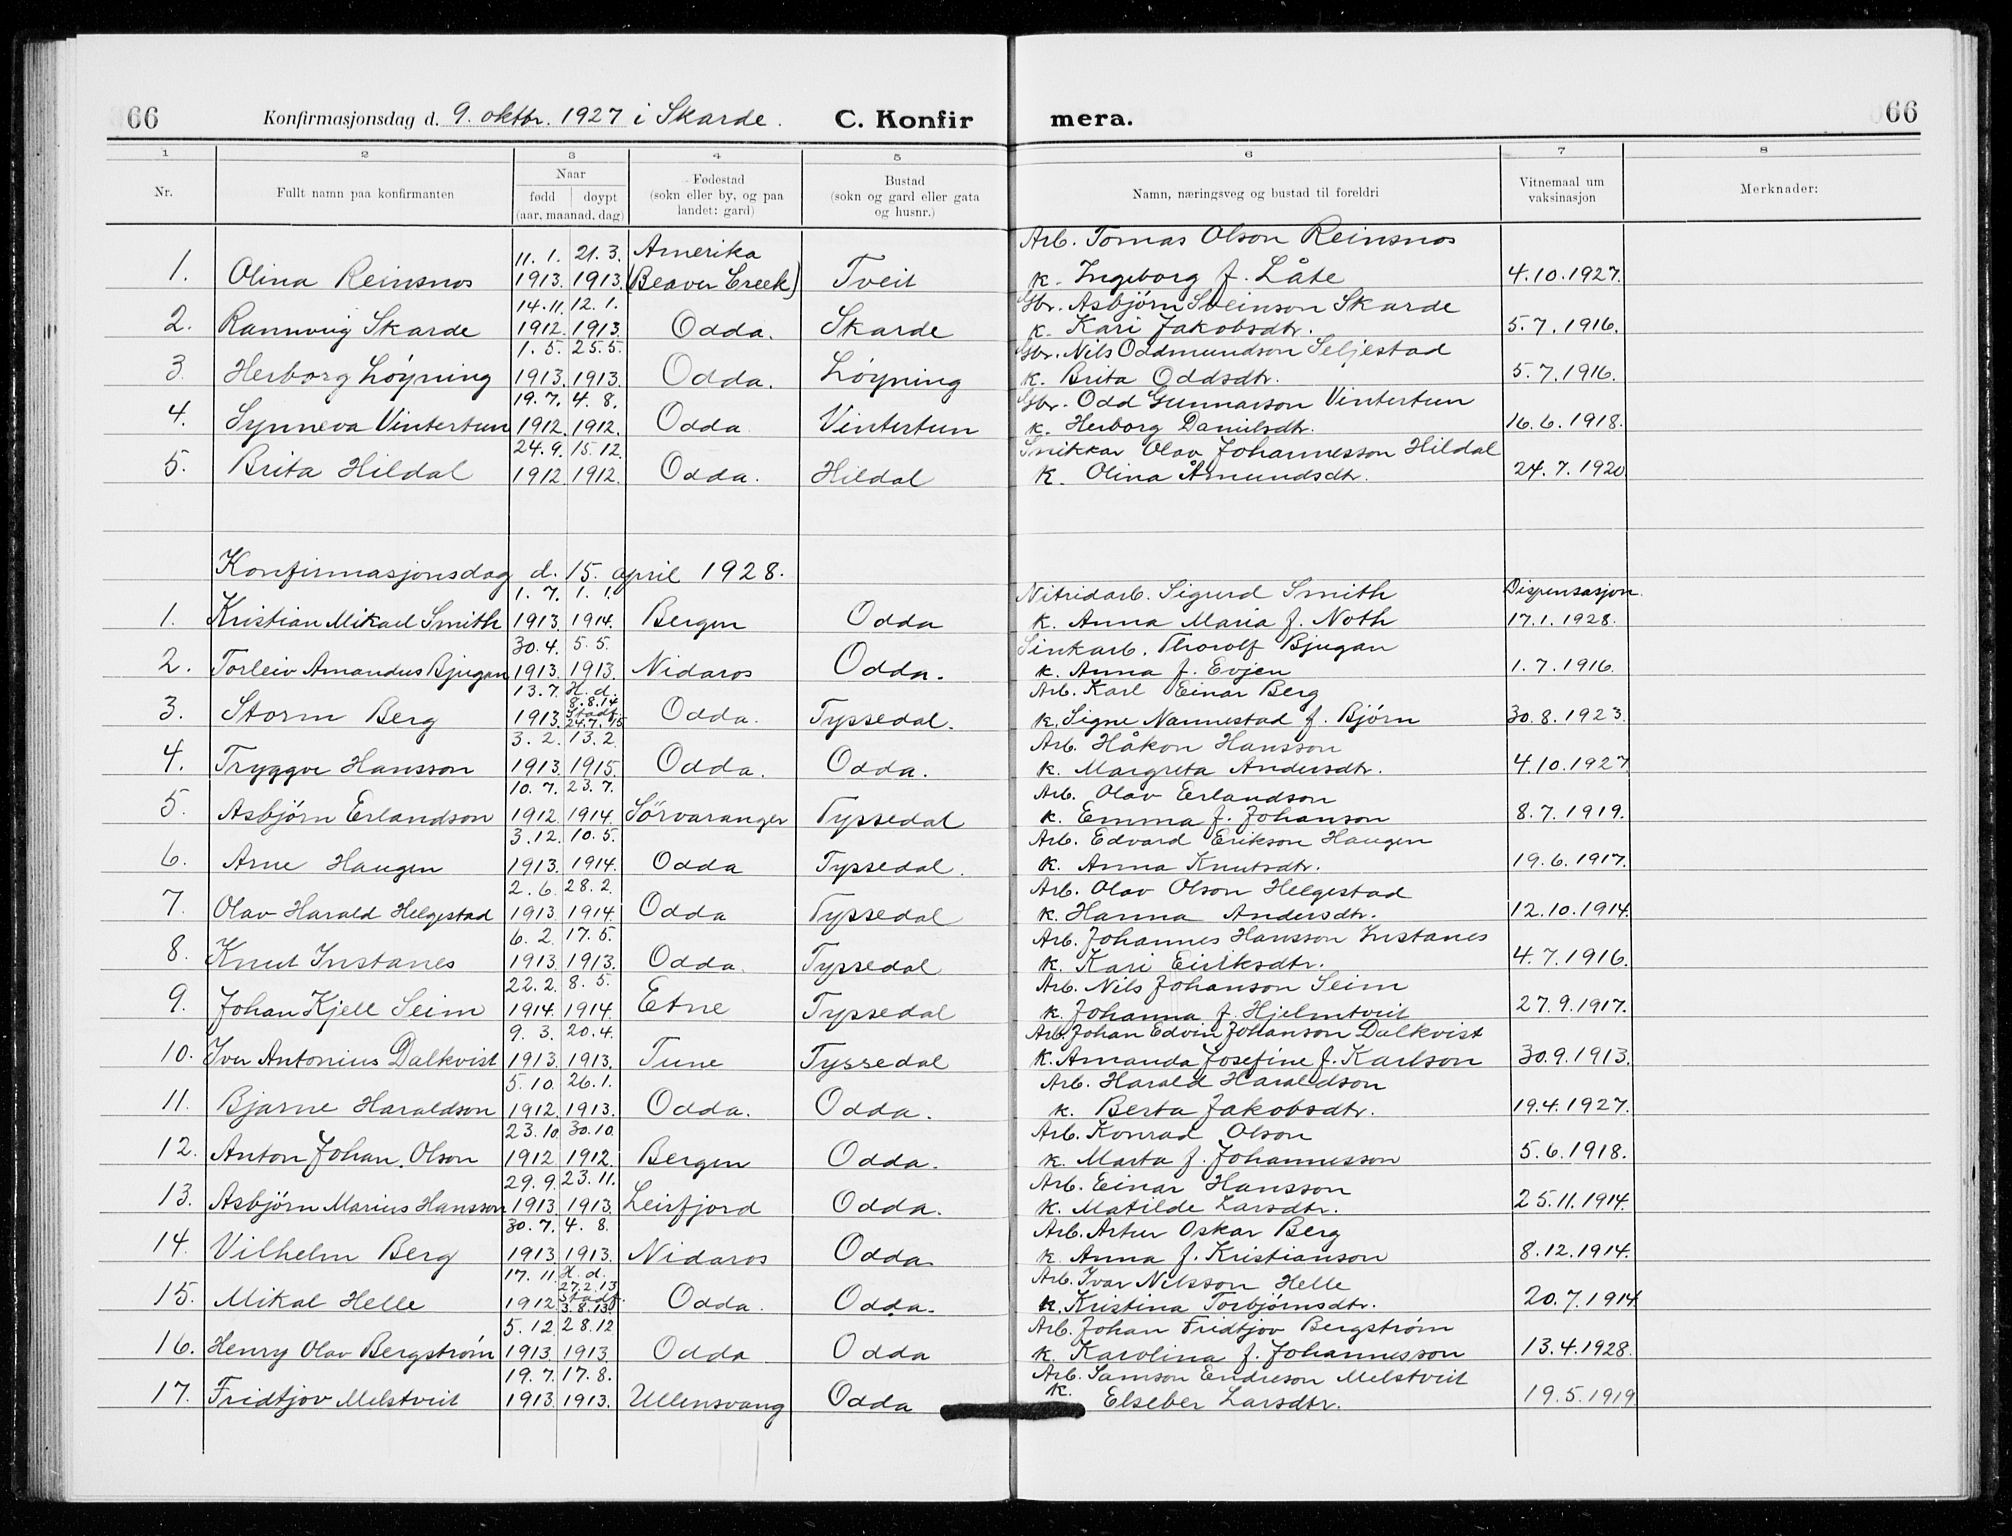 66 Konfirmasjonsdag d. 9. oktbr. 1927 i Skarde. C. Konfir mera. 66
1 2 3 4 5 6 7 8
Nr. Fullt namn paa konfirmanten Naar fødd døypt (aar, maanad, dag) Fødestad (sokn eller by, og paa landet: gard) Bustad (sokn og gard eller gata og husnr.) Namn, næringsveg og bustad til foreldri Vitnemaal um vaksinasjon Merknader:
11. 1. 21. 3. Amerika Arb. Tomas Olson Reinsnos
1. Olina Reinsnos 1913. 1913. (Beaver Creek) Tveit k. Ingeborg f. Låte 4.10.1927.
14. 11. 12. 1. Gbr. Asbjørn Sveinson Skarde
2. Rannveig Skarde 1912. 1913. Odda. Skarde k. Kari Jakobsdtr. 5.7.1916.
1. 5. 25. 5. Gbr. Nils Oddmundson Seljestad
3. Herborg Løyning 1913. 1913. Odda. Løyning k. Brita Oddsdtr. 5.7.1916.
19. 7. 4. 8. Gbr. Odd Gunnarson Vintertun
4. Synneva Vintertun 1912. 1912. Odda Vintertun k. Herborg Danielsdtr. 16.6.1918.
24. 9. 15. 12. Snikkar Olav Johannesson Hildal
5. Brita Hildal 1912. 1912. Odda. Hildal k. Olina Åmundsdtr. 24.7.1920
Konfirmasjonsdag d. 15. april 1928.
1. 7. 1. 1. Nitridarb. Sigurd Smith Dispensasjon
1. Kristian Mikael Smith 1913. 1914. Bergen Odda k. Anna Maria f. Noth 17.1.1928.
30. 4. 5. 5. Sinkarb. Thorolf Bjugan
2. Torleiv Amandus Bjugan 1913. 1913. Nidaros Odda. k. Anna f. Evjen 1.7.1916.
13. 7. H. d. 8.8.14 Arb. Karl Einar Berg
3. Storm Berg 1913. Stadf. 24.7.15 Odda. Tyssedal. k. Signe Nannestad f. Bjørn 30.8.1923.
3. 2. 13. 2. Arb. Håkon Hansson
4. Tryggve Hansson 1913. 1915. Odda. Odda. k. Margreta Andersdtr. 4.10.1927
10. 7. 23. 7. Arb. Olav Erlandson
5. Asbjørn Erlandson 1912 1914. Sørvaranger Tyssedal k. Emma f. Johanson 8.7.1919.
3. 12. 10. 5. Arb. Edvard Erikson Haugen
6. Arne Haugen 1913. 1914. Odda Tyssedal. k. Anna Knutsdtr. 19.6.1917.
2. 6. 28. 2. Arb. Olav Olson Helgestad
7. Olav Harald Helgestad 1913. 1914. Odda Tyssedal k. Hanna Andersdtr. 12.10.1914.
6. 2. 17. 5. Arb. Johannes Hansson Instanes
8. Knut Instanes 1913. 1913. Odda. Tyssedal k. Kari Eiriksdtr. 4.7.1916.
22. 2. 8. 5. Arb. Nils Johanson Seim
9. Johan Kjell Seim 1914. 1914. Etne Tyssedal k. Johanna f. Hjelmtveit 27.9.1917.
9. 3. 20. 4. Arb. Johan Edvin Johanson Dalkvist
10. Iver Antonius Dalkvist 1913. 1913. Tune Tyssedal k. Amanda Josefine f. Karlson 30.9.1913.
5. 10. 26. 1. Arb. Harald Haraldson
11. Bjarne Haraldson 1912. 1913. Odda. Odda. k. Berta Jakobsdtr. 19.4.1927.
23. 10. 30. 10. Arb. Konrad Olson
12. Anton Johan Olson 1912 1912. Bergen Odda. k. Marta f. Johannesson 5.6.1918.
29. 9. 23. 11. Arb. Einar Hansson
13. Asbjørn Marius Hansson 1913. 1913. Leirfjord Odda. k. Matilde Larsdtr. 25.11.1914.
30. 7. 4. 8. Arb. Artur Oskar Berg
14. Vilhelm Berg 1913. 1913. Nidaros Odda. k. Anna f. Kristianson 8.12.1914.
17. 11. H. d. 27.2.13 Arb. Ivar Nilsson Helle
15. Mikal Helle 1912. Stadf. 3.8.13 Odda. Odda. k. Kristina Torbjørnsdtr. 20.7.1914
5. 12 28. 12 Arb. Johan Fridtjov Bergstrøm
16. Henry Olav Bergstrøm 1913. 1913 Odda Odda k. Karolina f. Johannesson 13.4.1928.
19. 7. 17. 8. Arb. Samson Endreson Melstveit
17. Fridtjov Melstveit 1913. 1913. Ullensvang Odda k. Elseber Larsdtr. 19.5.1919